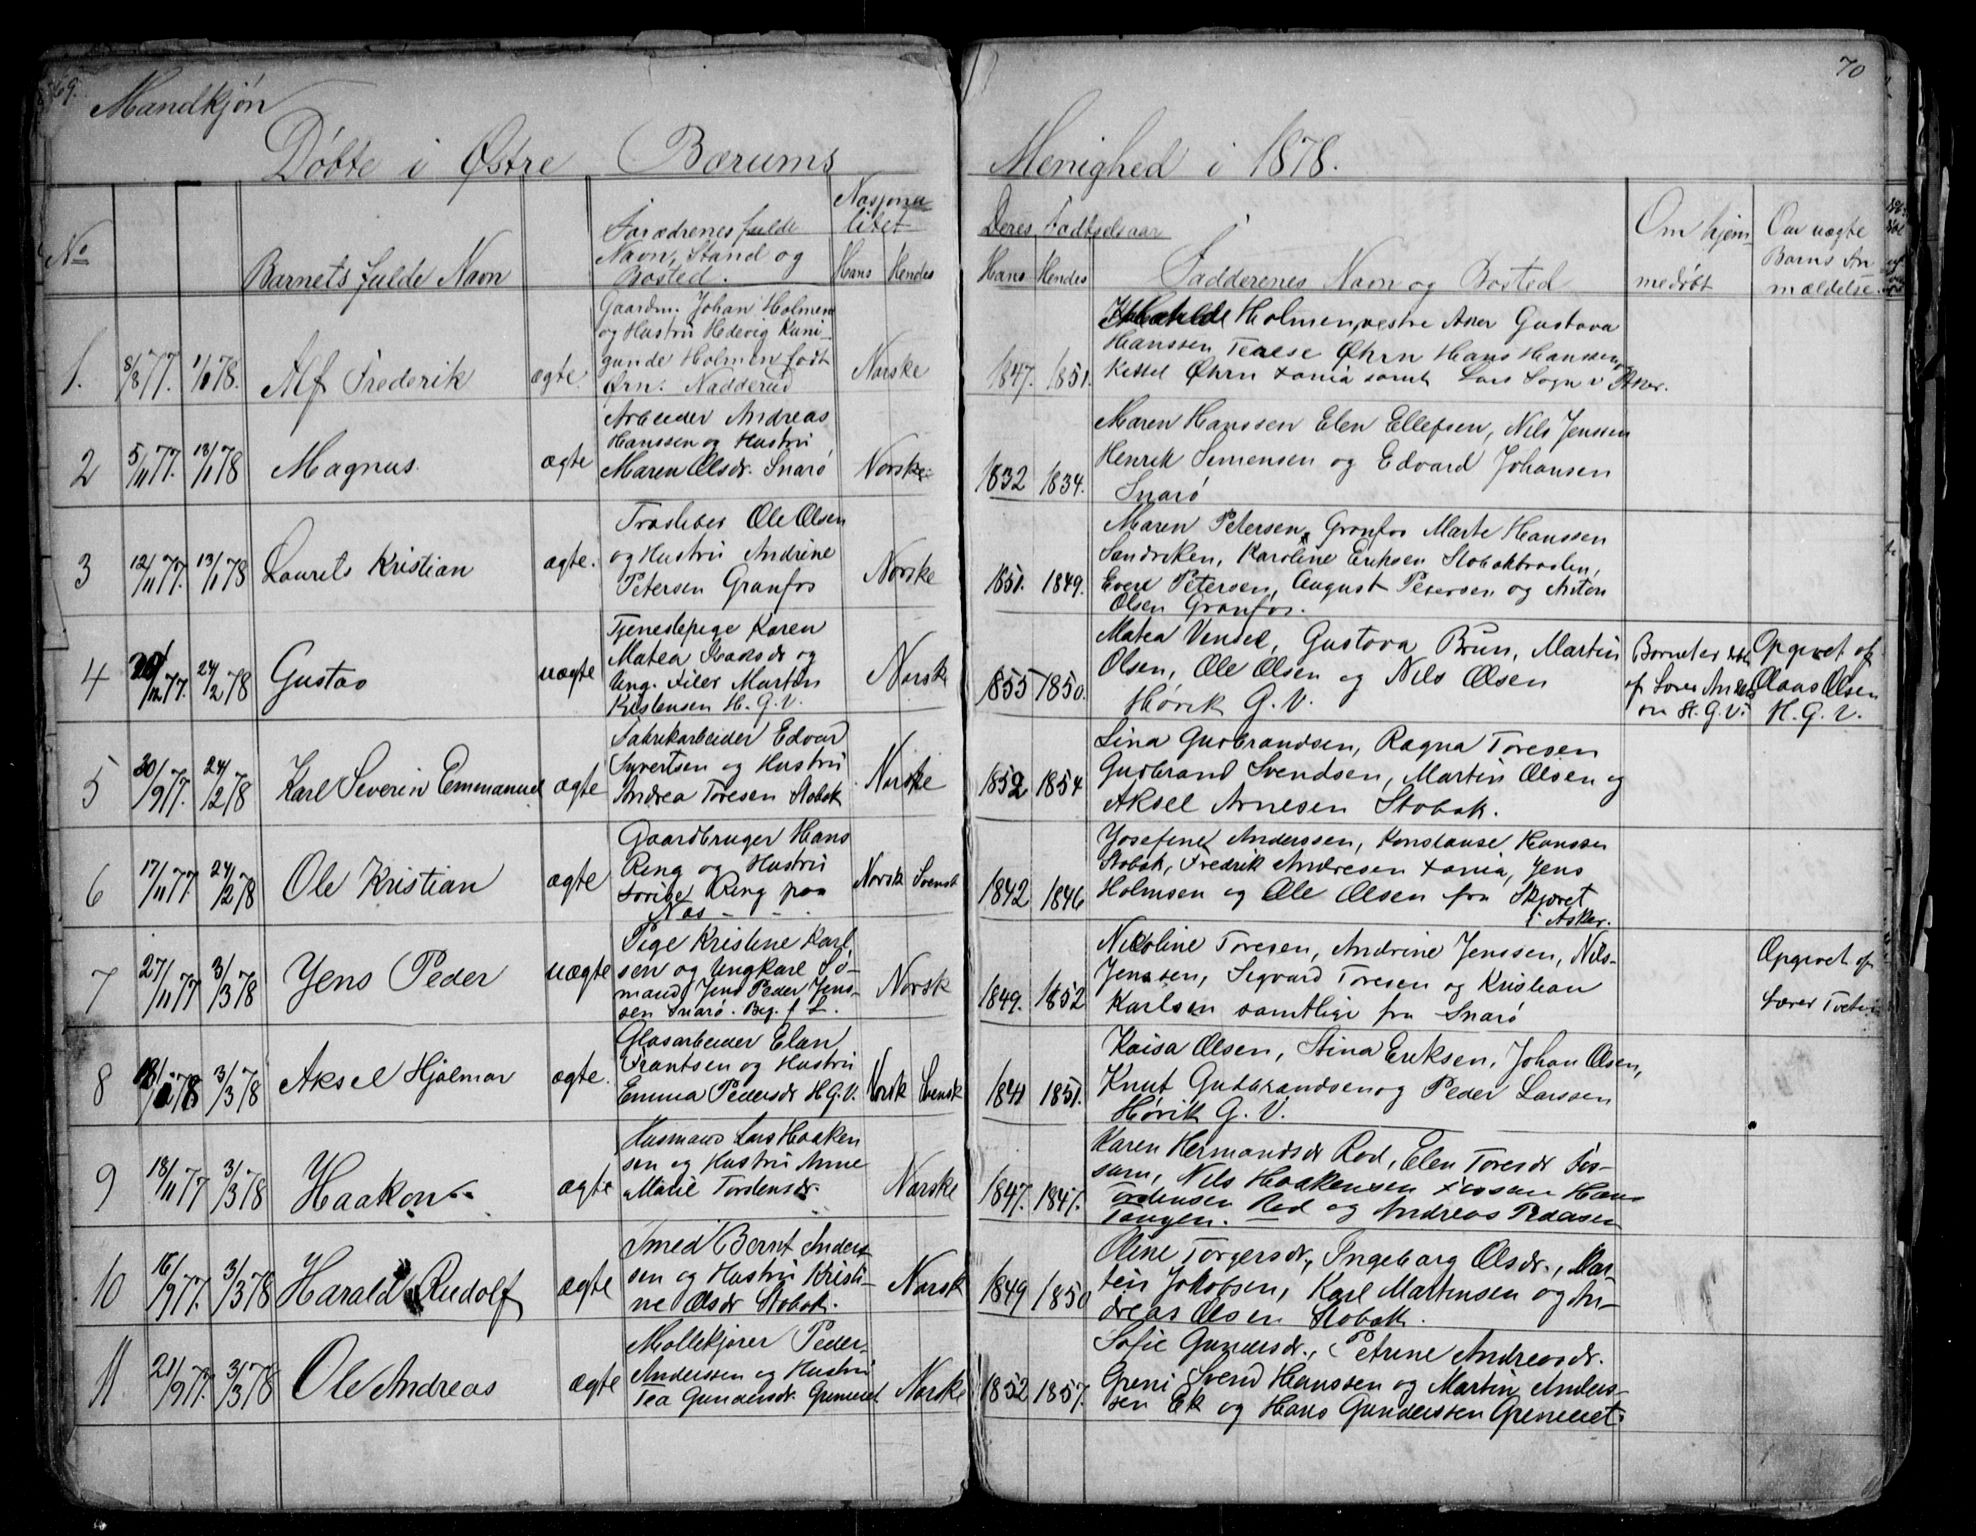 69.
Mandkjøn
Døbte i Østre Bærums
No
Barnets fulde Navn
Foræd­renes fulde
Navn, Stand og
Bosted.
Nasjona
litet
Hans Hendes
1. 8/8 77. 1/1 78. Alf Frederik ægte.
Gaardm. Johan Holmen
og Hustru Hedevig Kuni-
gunde Holmen født
Ørn. Nadderud
Norske
2 5/11 77. 13/1 78 Magnus. ægte
Arbeider Andreas
Hanssen og Hustru
Maren Olsdr. Snarø
Norske
3 12/11 77. 13/1 78 Laurets Kristian ægte.
Ole Olsen
og Hustru Andrine
Petersen Granfos
Norske
4 12 77. 24/2 78 Gustav uægte
Tjenestepige Karen
Matea og
Ung. Martin
Kristensen H. G. V.
Norske
5 30/9 77. 24/2 78 Karl Severin Emmanuel ægte
Fabrikarbeider Edvar
Syvertsen og Hustru
Andrea Toresen Stabæk
Norske
6 17/11 77 24/2 78 Ole Kristian ægte
Gaardbruger Hans
Ring og Hustru
Ring paa
Næs
Norsk Svensk
7 27/11 77 3/3 78 Jens Peder uægte
Pige Kristine Karl
sen og Ungkarl Sø-
mand Jens Peder Jens-
sen Snarø.
Norsk
8 78 3/3 78 Aksel Hjalmar ægte.
Glasarbeider Elan
Frantsen og Hustru
Emma Pedersdr H.G.V.
Norsk Svensk
9 18/11 77 3/3 78 Haakon ægte
Husmand Lars Haaken
sen og Hustru Anne
Marie Tordensdr.
Norske
10 16/9 77. 3/3 78 Harald Rudolf ægte
Smed Bernt Anders
sen og Hustru Kristi-
ne Olsdr Stabæk.
Norsk
11 21/9 77. 3/3 78 Ole Andreas ægte
Møllekjører Peder
Anderssen og Hustru
Tea Gundersdr.
Norske
70
Menighed i 1878.
Deres Fødselsaar
Hans Hendes
Fadderenes Navn og Bosted
Om hjem
medøbt
Om uægte
Barns An
mældelse.
1847. 1851.
Holmen, vestre Asker Gustava
Hanssen Terese Øhrn Hans Hanssen
Øhrn samt Lars Sogn i Asker.
1832 1834.
Maren Hanssen Elen Ellefsen, Nils Jenssen
Henrik Simensen og Edvard Johansen
Snarø
1851. 1849.
Maren Petersen, Granfos Marte Hanssen
Sandviken, Karoline Eriksen
Petersen, August Petersen og Anton
Olsen Granfos.
1855 1850.
Matea Gustava Brun, Martin
Olsen, Ole Olsen og Nils Olsen
Høvik G. V.
Barnet er
af
H. G. V.
Opgivet af
Olaus Olsen
H. G. V.
1852 1854
Lina Gudbrandsen, Ragna Toresen
Gudbrand Svendsen, Martin Olsen og
Aksel Arnesen Stabæk.
1842 1846
Josefine Anderssen, Konstanse Hanssen
Stabæk, Fredrik Andresen Jens
Holmsen og Ole Olsen fra Skjæret
i Asker.
1849. 1852
Nicoline Toresen, Andrine Jenssen, Nils
Jenssen, Sigvard Toresen og Kristian
Karlsen samtlige fra Snarø
Opgivet af
Lærer
1851.
Kaisa Olsen, Stina Eriksen, Johan Olsen,
Knut Gudbrandsen og Peder Larssen
Høvik G. V.
1847. 1847.
Karen Hermandsdr Rød, Elen Toresdr Fos-
sum, Nils Haakensen Fossum Hans
Tordensen Rød og Andreas
Tangen.
1849 1850
Oline Torgersdr, Ingeborg Olsdr., Mar-
tin Jakobsen, Karl Martinsen og An-
dreas Olsen Stabæk.
1852 1857.
Sofie Gundersdr., Petrine Andreasdr.
Greni Svend Hanssen og Martin Anders-
sen Ek og Hans Gunderssen